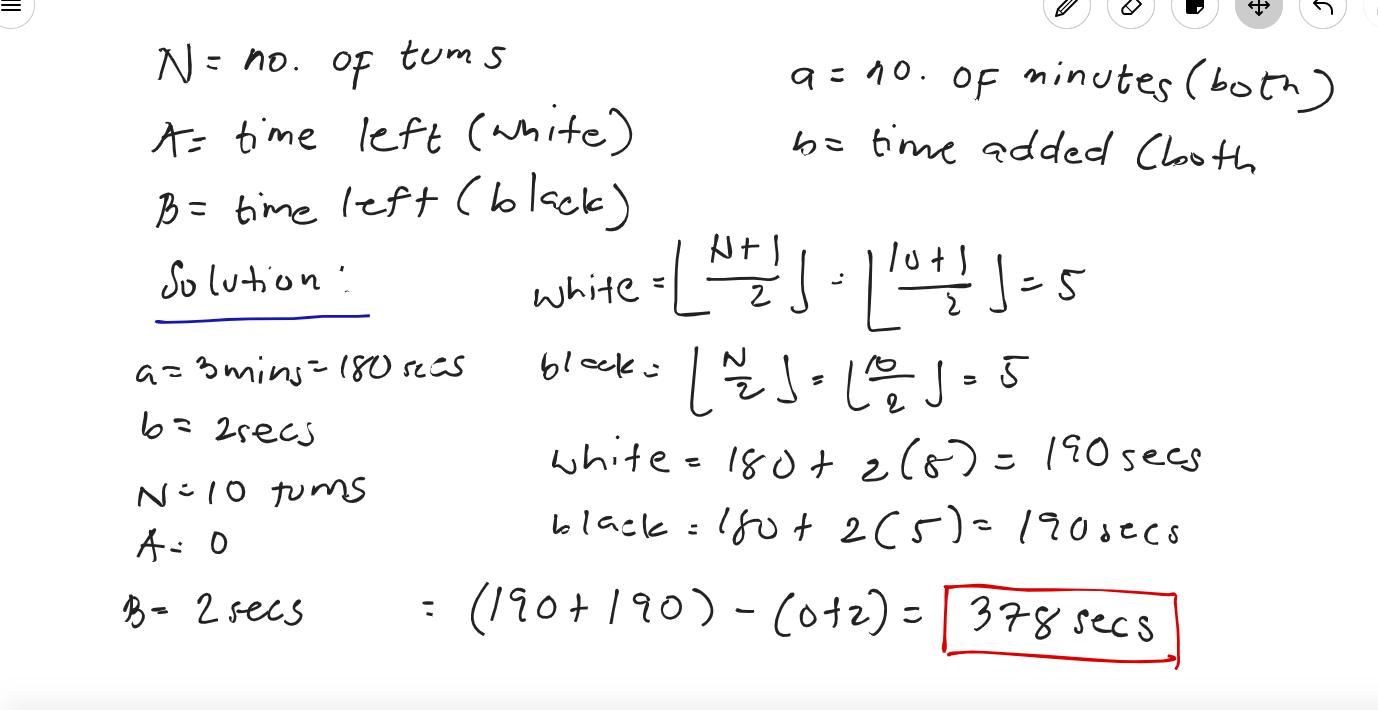 N = no. of turns
A = time left (white)
B = time left (black)
a = no. of minutes (both)
b = time added (both
Solution:
a = 3 mins = 180 secs
b = 2 secs
N = 10 turns
A = 0
B = 2 secs
white = ⌊(N+1)/2⌋ = ⌊(10+1)/2⌋ = 5
black = ⌊N/2⌋ = ⌊10/2⌋ = 5
white = 180 + 2(5) = 190 secs
black = 180 + 2(5) = 190 secs
= (190 + 190) - (0+2) = 378 secs